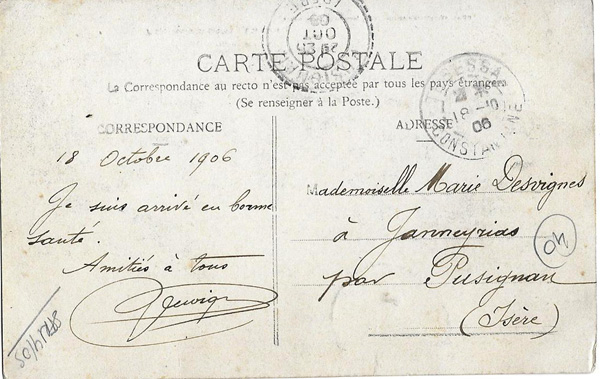 CARTE POSTALE
La Correspondance au recto n'est pas acceptée par tous les pays étrangers
(Se renseigner à la Poste.)
CORRESPONDANCE
18 Octobre 1906
Je suis arrivé en bonne
santé.
Amitiés à tous
ADRESSE
Mademoiselle Marie Desvignes
à Janneyrias
par Pusignan
(Isère)
40
CONSTANTINE
06